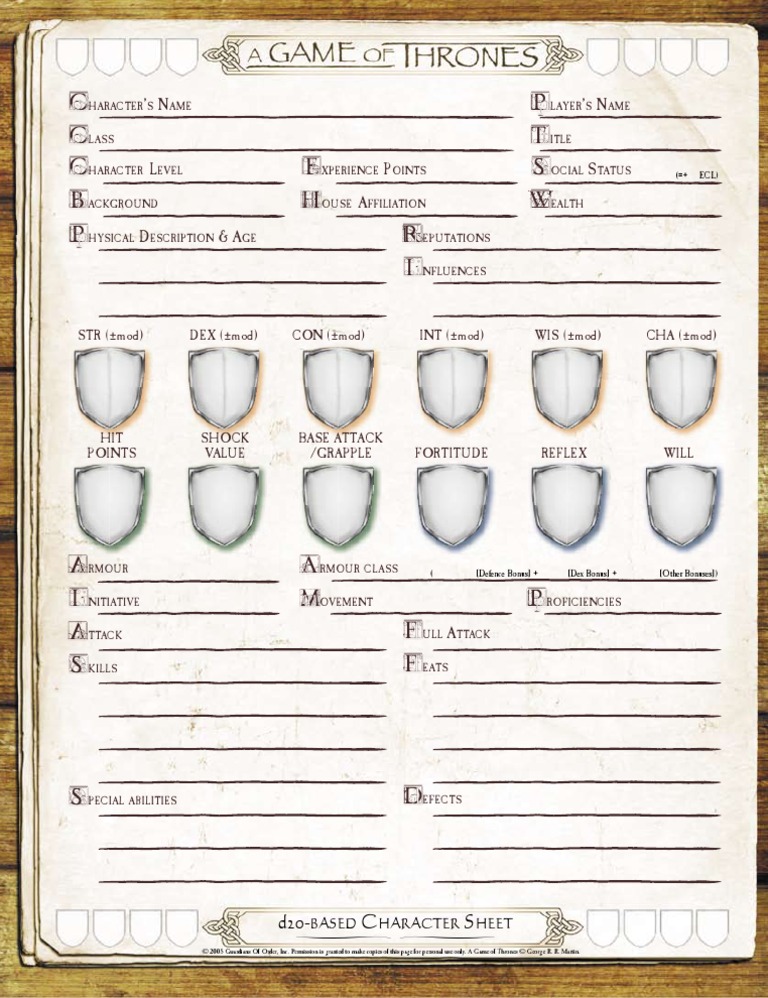 A GAME OF THRONES
CHARACTER'S NAME PLAYER'S NAME
CLASS TITLE
CHARACTER LEVEL EXPERIENCE POINTS SOCIAL STATUS (=+ ECL)
BACKGROUND HOUSE AFFILIATION WEALTH
PHYSICAL DESCRIPTION & AGE REPUTATIONS
INFLUENCES
STR (±mod) DEX (±mod) CON (±mod) INT (±mod) WIS (±mod) CHA (±mod)
HIT POINTS SHOCK VALUE BASE ATTACK /GRAPPLE FORTITUDE REFLEX WILL
ARMOUR ARMOUR CLASS ( [Defence Bonus] + [Dex Bonus] + [Other Bonuses])
INITIATIVE MOVEMENT PROFICIENCIES
ATTACK FULL ATTACK
SKILLS FEATS
SPECIAL ABILITIES DEFECTS
d20-BASED CHARACTER SHEET
© 2005 Guardians Of Order, Inc. Permission is granted to make copies of this page for personal use only. A Game of Thrones © George R. R. Martin